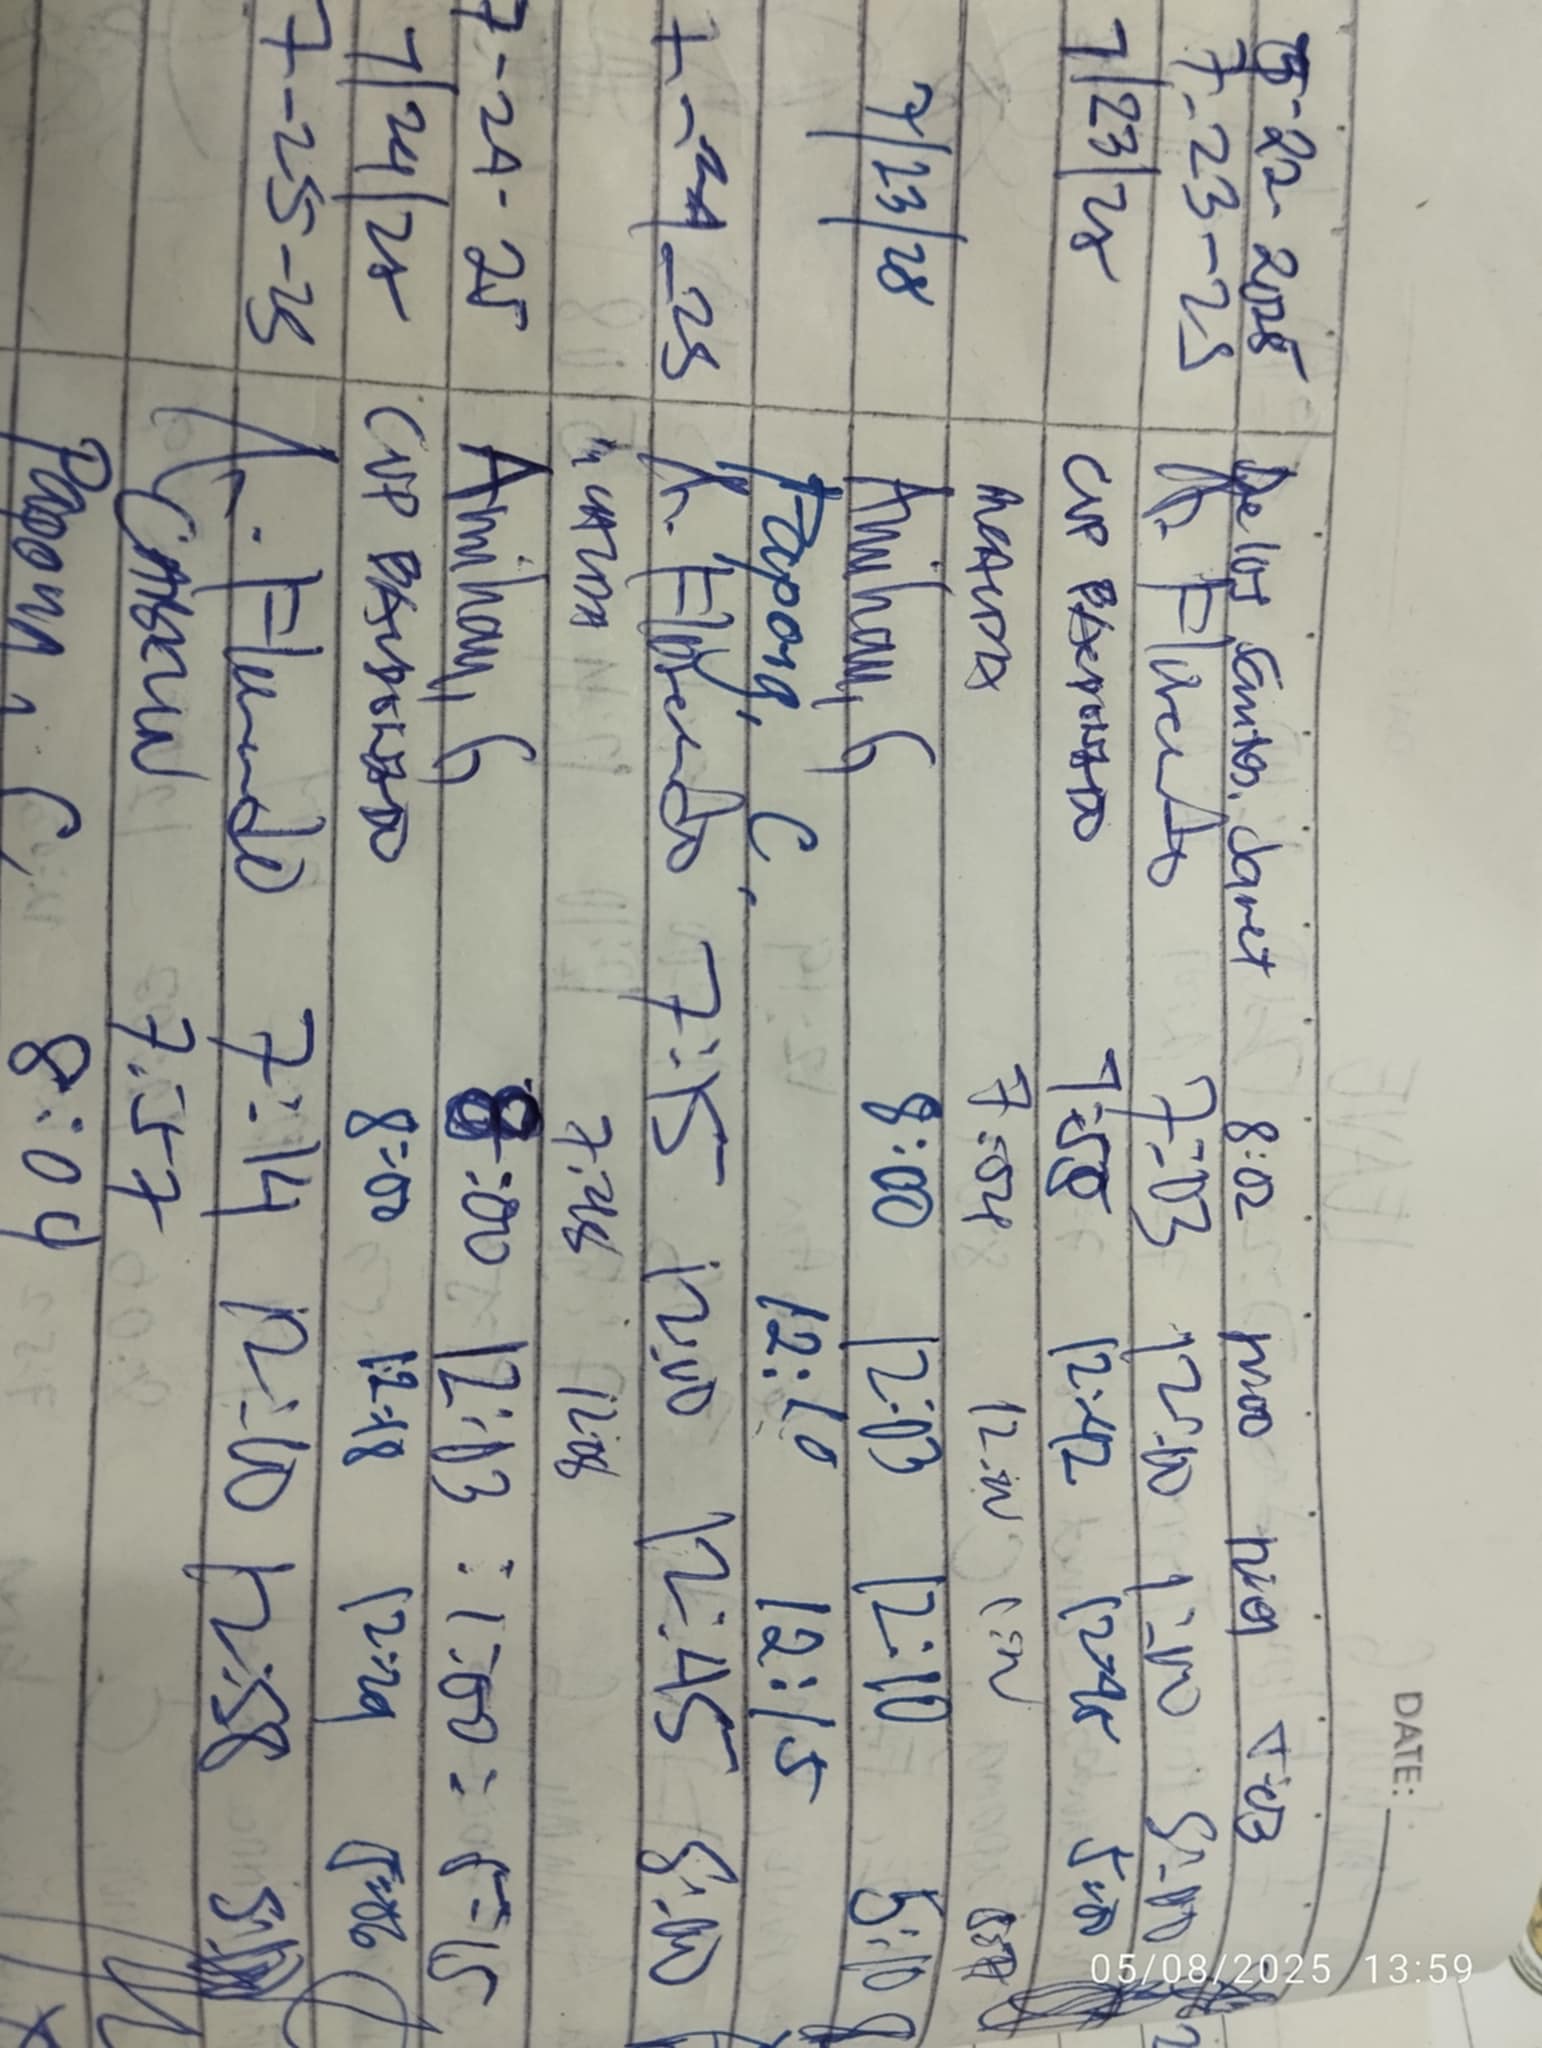 DATE:
7-22-2025 Delos Santos, Janet 8:02 12:00 12:01 5:03
7-23-25 A. Florendo 7:03 12:10 1:00 5:00
7/23/25 CVP 7:58 12:42 12:45 5:00
7:04
7/23/25 Amihan, G 8:00 12:03 12:10 5:10
Papong, C, 12:10 12:15
7-24-25 A. Florendo 7:15 12:10 12:45 5:00
7:48 12:08
7-24-25 Amihan, G 8:00 12:03 : 1:00 : 5:15
7/24/25 CVP 8:00 12:18 12:29 5:06
7-25-25 A. Florendo 7:14 12:10 12:58
7:57
Papong, C, 8:04
05/08/2025 13:59